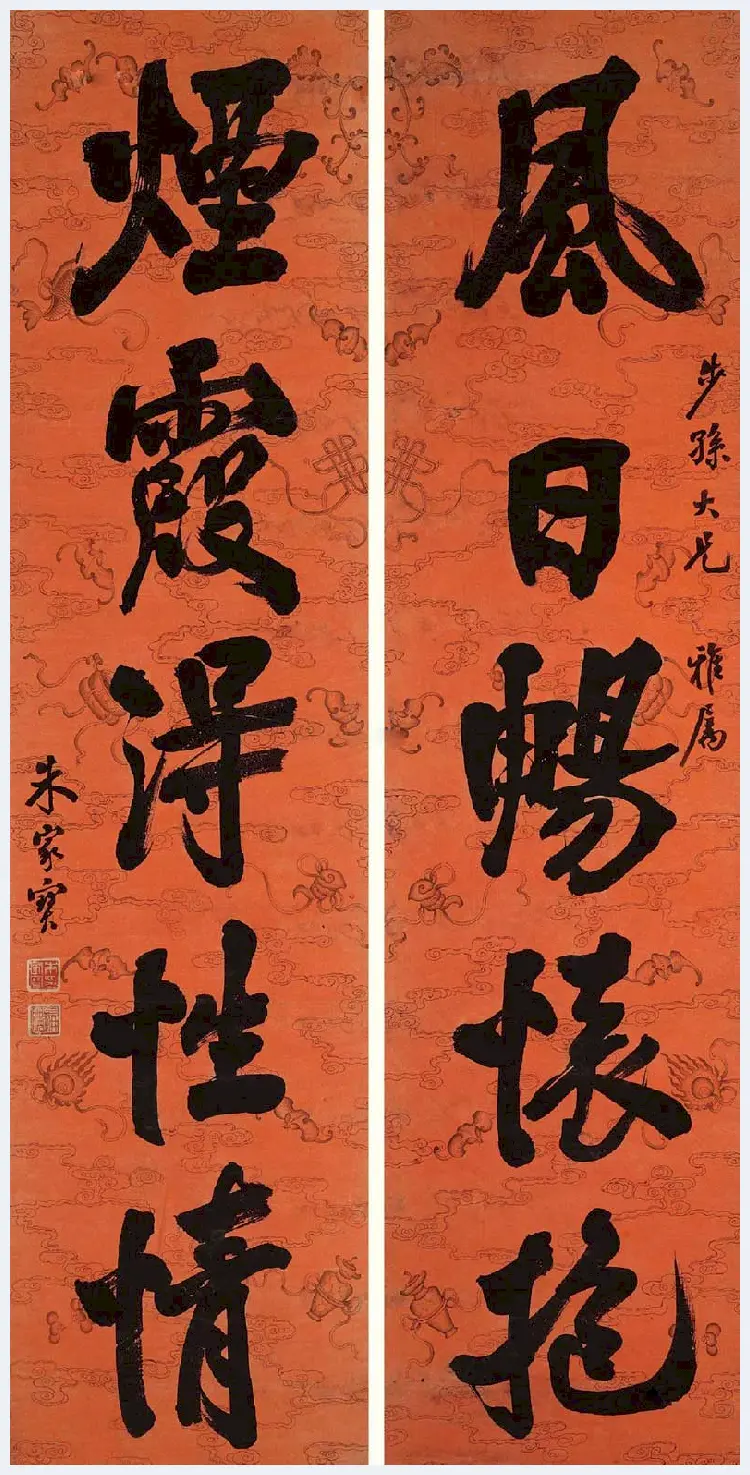 風日暢懷抱
步孫大兄
雅屬
煙霞得性情
朱家寶